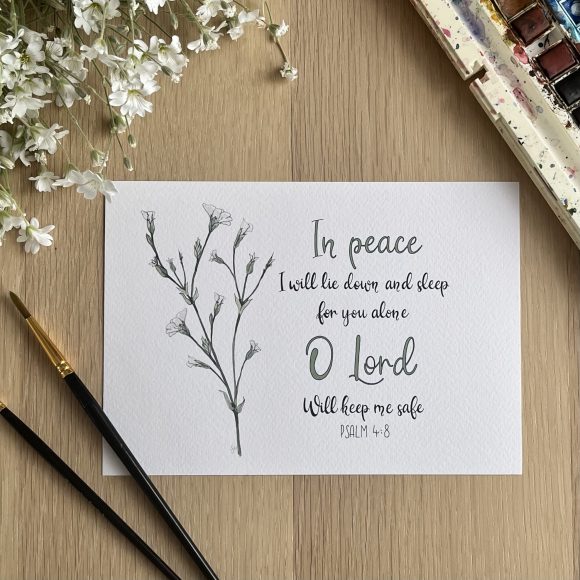 In peace
I will lie down and sleep
for you alone
O Lord
Will keep me safe
PSALM 4:8